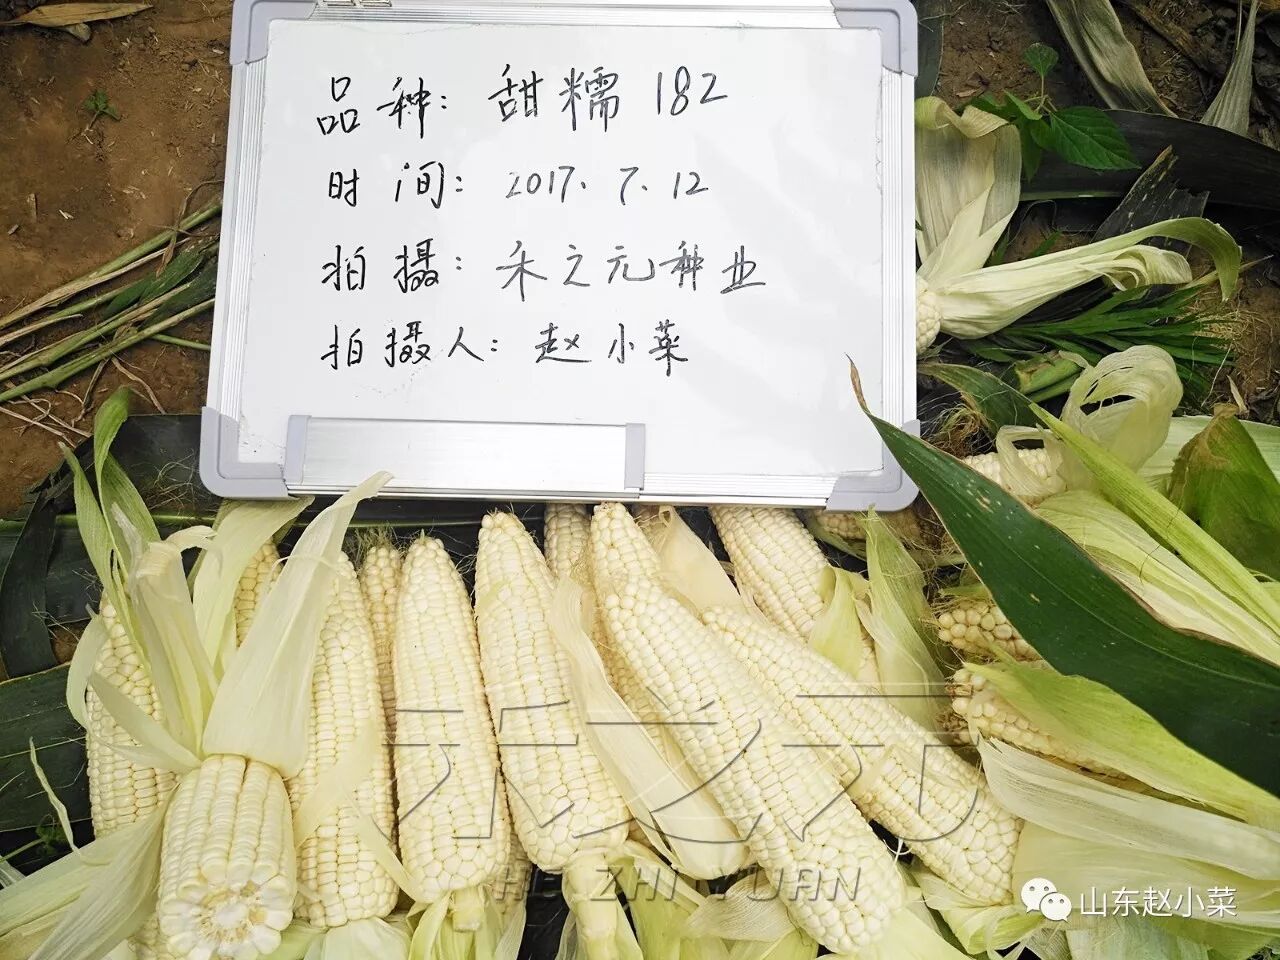 品种：甜糯182
时间：2017.7.12
拍摄：禾之元种业
拍摄人：赵小菜
禾之元
HE ZHI YUAN
山东赵小菜